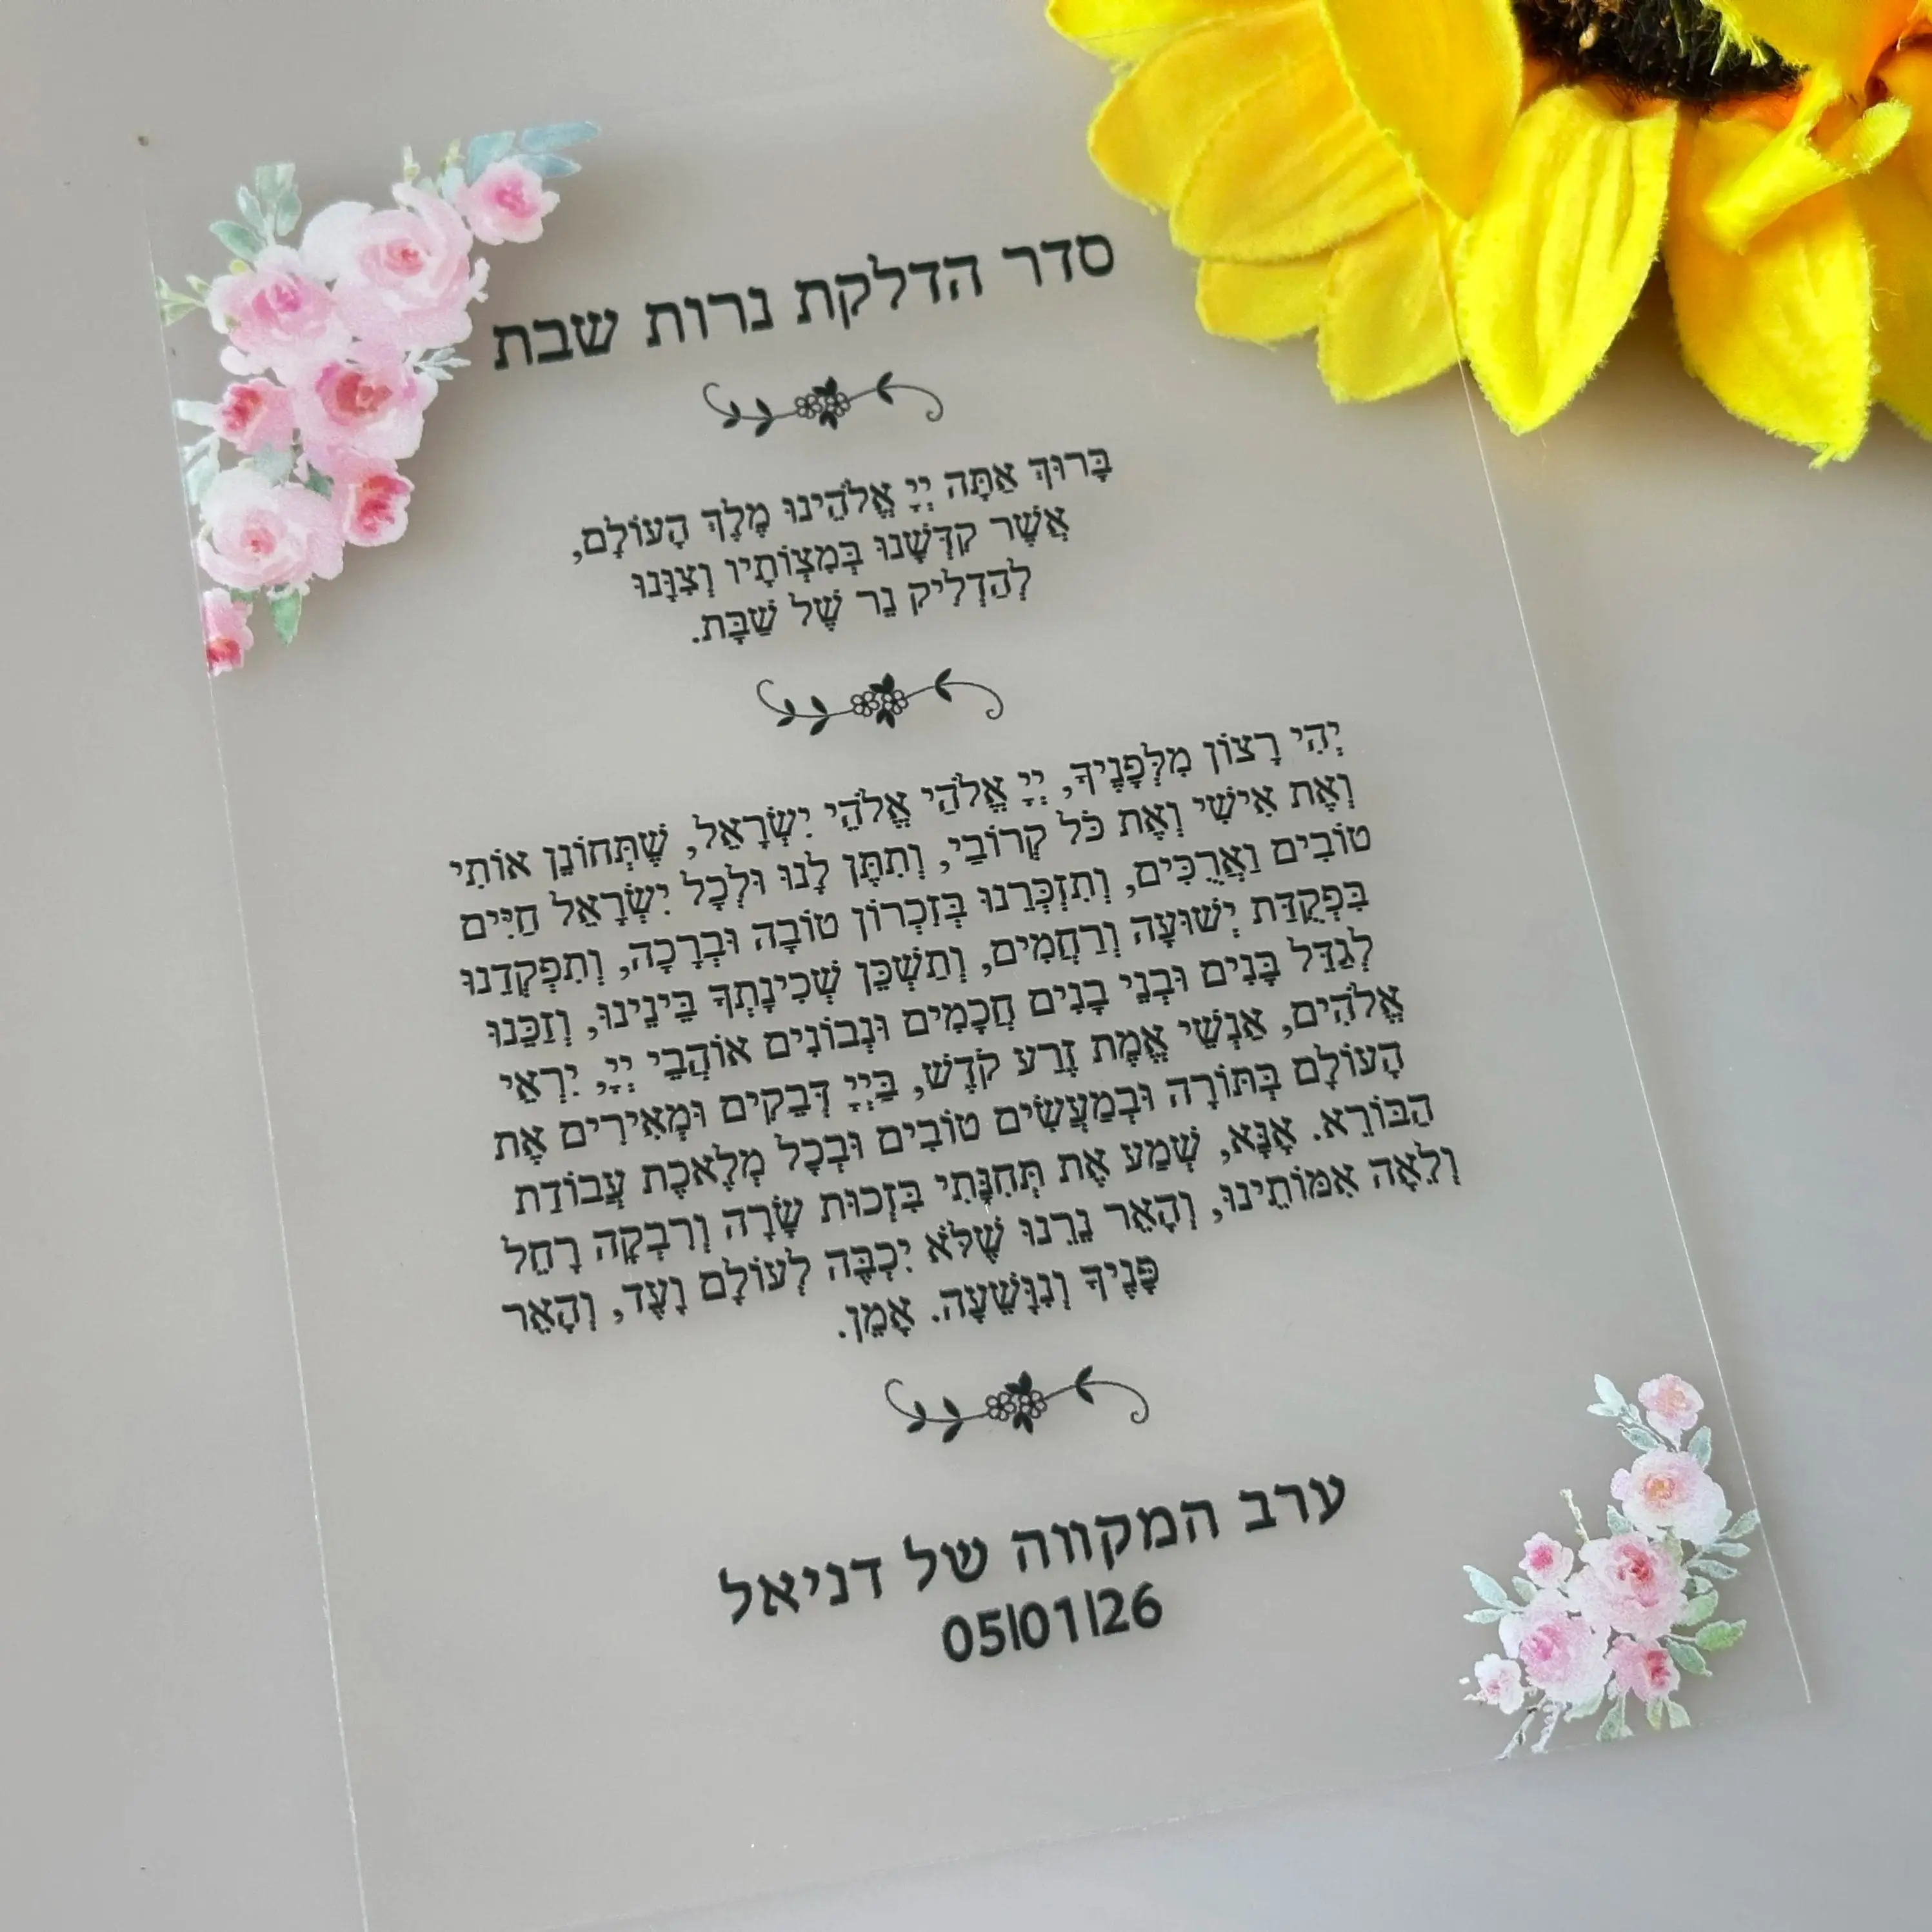 סדר הדלקת נרות שבת
בָּרוּךְ אַתָּה יְיָ אֱלֹהֵינוּ מֶלֶךְ הָעוֹלָם,
אֲשֶׁר קִדְּשָׁנוּ בְּמִצְוֹתָיו וְצִוָּנוּ
לְהַדְלִיק נֵר שֶׁל שַׁבָּת.
יְהִי רָצוֹן מִלְּפָנֶיךָ, יְיָ אֱלֹהַי אֱלֹהֵי יִשְׂרָאֵל, שֶׁתְּחוֹנֵן אוֹתִי
וְאֶת אִישִׁי וְאֶת כֹּל קְרוֹבַי, וְתִתֶּן לָנוּ וּלְכָל יִשְׂרָאֵל חַיִּים
טוֹבִים וַאֲרֻכִּים, וְתִזְכְּרֵנוּ בְּזִכְרוֹן טוֹבָה וּבְרָכָה, וְתִפְקְדֵנוּ
בִּפְקֻדַּת יְשׁוּעָה וְרַחֲמִים, וְתַשְׁכֵּן שְׁכִינָתְךָ בֵּינֵינוּ, וְזַכֵּנוּ
לְגַדֵּל בָּנִים וּבְנֵי בָנִים חֲכָמִים וּנְבוֹנִים אוֹהֲבֵי יְיָ, יִרְאֵי
אֱלֹהִים, אַנְשֵׁי אֱמֶת זֶרַע קֹדֶשׁ, בַּיְיָ דְּבֵקִים וּמְאִירִים אֶת
הָעוֹלָם בְּתּוֹרָה וּבְמַעֲשִׂים טוֹבִים וּבְכָל מְלֶאכֶת עֲבוֹדַת
הַבּוֹרֵא. אָנָּא, שְׁמַע אֶת תְּחִנָּתִי בִּזְכוּת שָׂרָה וְרִבְקָה רָחֵל
וְלֵאָה אִמּוֹתֵינוּ, וְהָאֵר נֵרֵנוּ שֶׁלֹּא יִכְבֶּה לְעוֹלָם וָעֶד, וְהָאֵר
פָּנֶיךָ וְנִוָּשֵׁעָה. אָמֵן.
ערב המקווה של דניאל
05|01|26